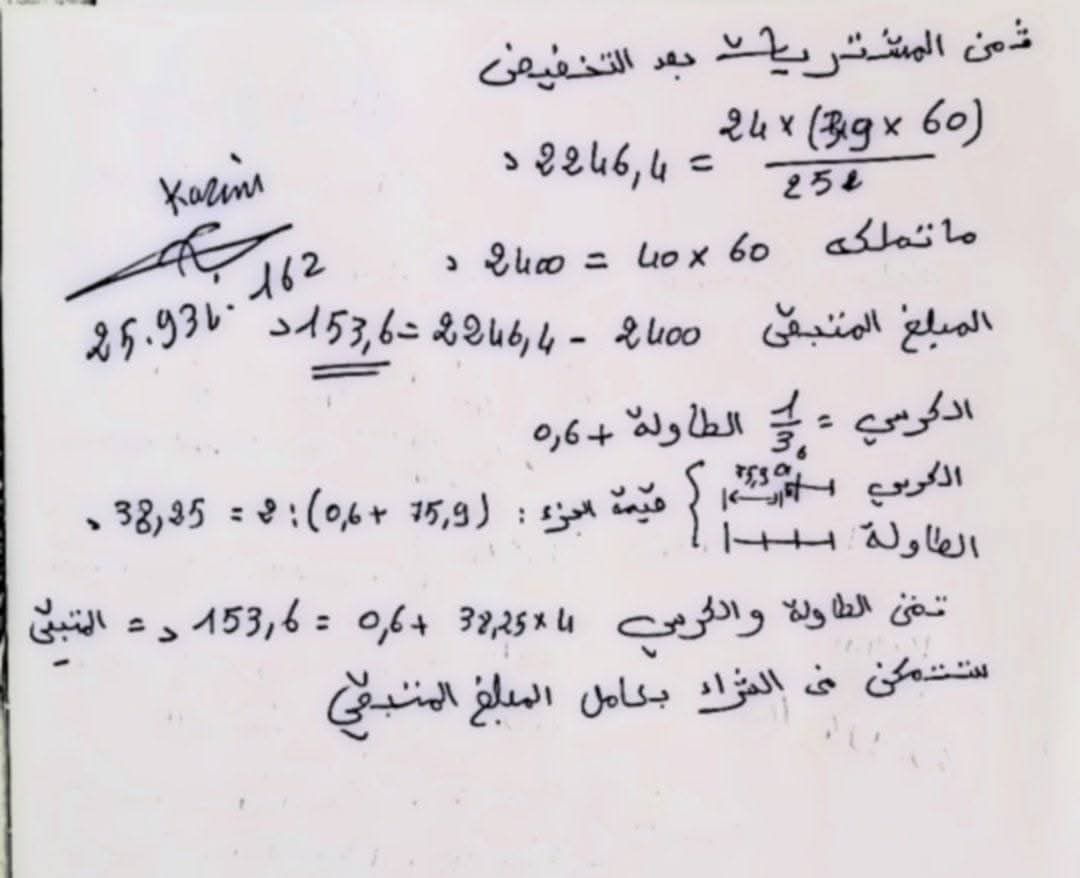 ثمن المشتريات بعد التخفيض
2246,4 د = 24 × (39 × 60) / 25
Karim
ما تملكه 60 × 40 = 2400 د
25.931.162
المبلغ المتبقي 2400 - 2246,4 = 153,6 د
الكرسي = 1/3 الطاولة + 0,6
الكرسي 75,9 0,6
الطاولة
قيمة الجزء : (75,9 + 0,6) : 2 = 38,25 د
ثمن الطاولة والكرسي 4 × 38,25 + 0,6 = 153,6 د = المتبقي
ستتمكن من الشراء بكامل المبلغ المتبقي